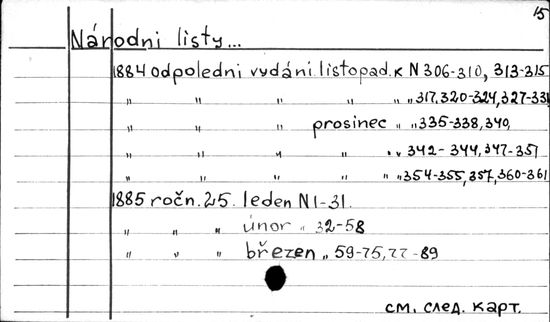 15
Národni listy...
1884 odpoledni vydáni. listopad. к N 306-310, 313-315
" " " " " " 317, 320-324, 327-331
" " " prosinec " " 335-338, 340,
" " " " " " 342-344, 347-351
" " " " " " 354-355, 357, 360-361
1885 ročn. 25. leden N 1-31.
" " " únor " 32-58
" " " březen " 59-75, 77-89
см. след. карт.